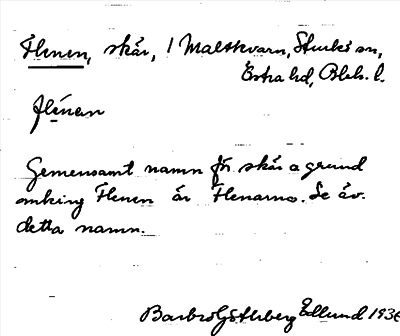 Flenen, skär, / Maltkvarn, Sturkö sn,
Östra hd, Blek. l.
flénen
Gemensamt namn för skär o grund
omkring Flenen är Flenarna. Se äv.
detta namn.
Barbro Edlund 193